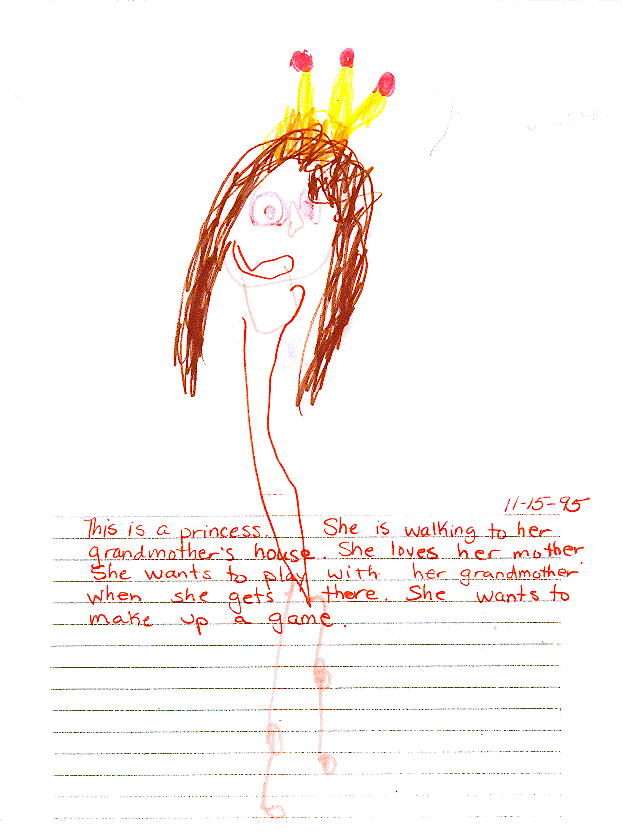 11-15-95
This is a princess. She is walking to her
grandmother's house. She loves her mother.
She wants to play with her grandmother
when she gets there. She wants to
make up a game.